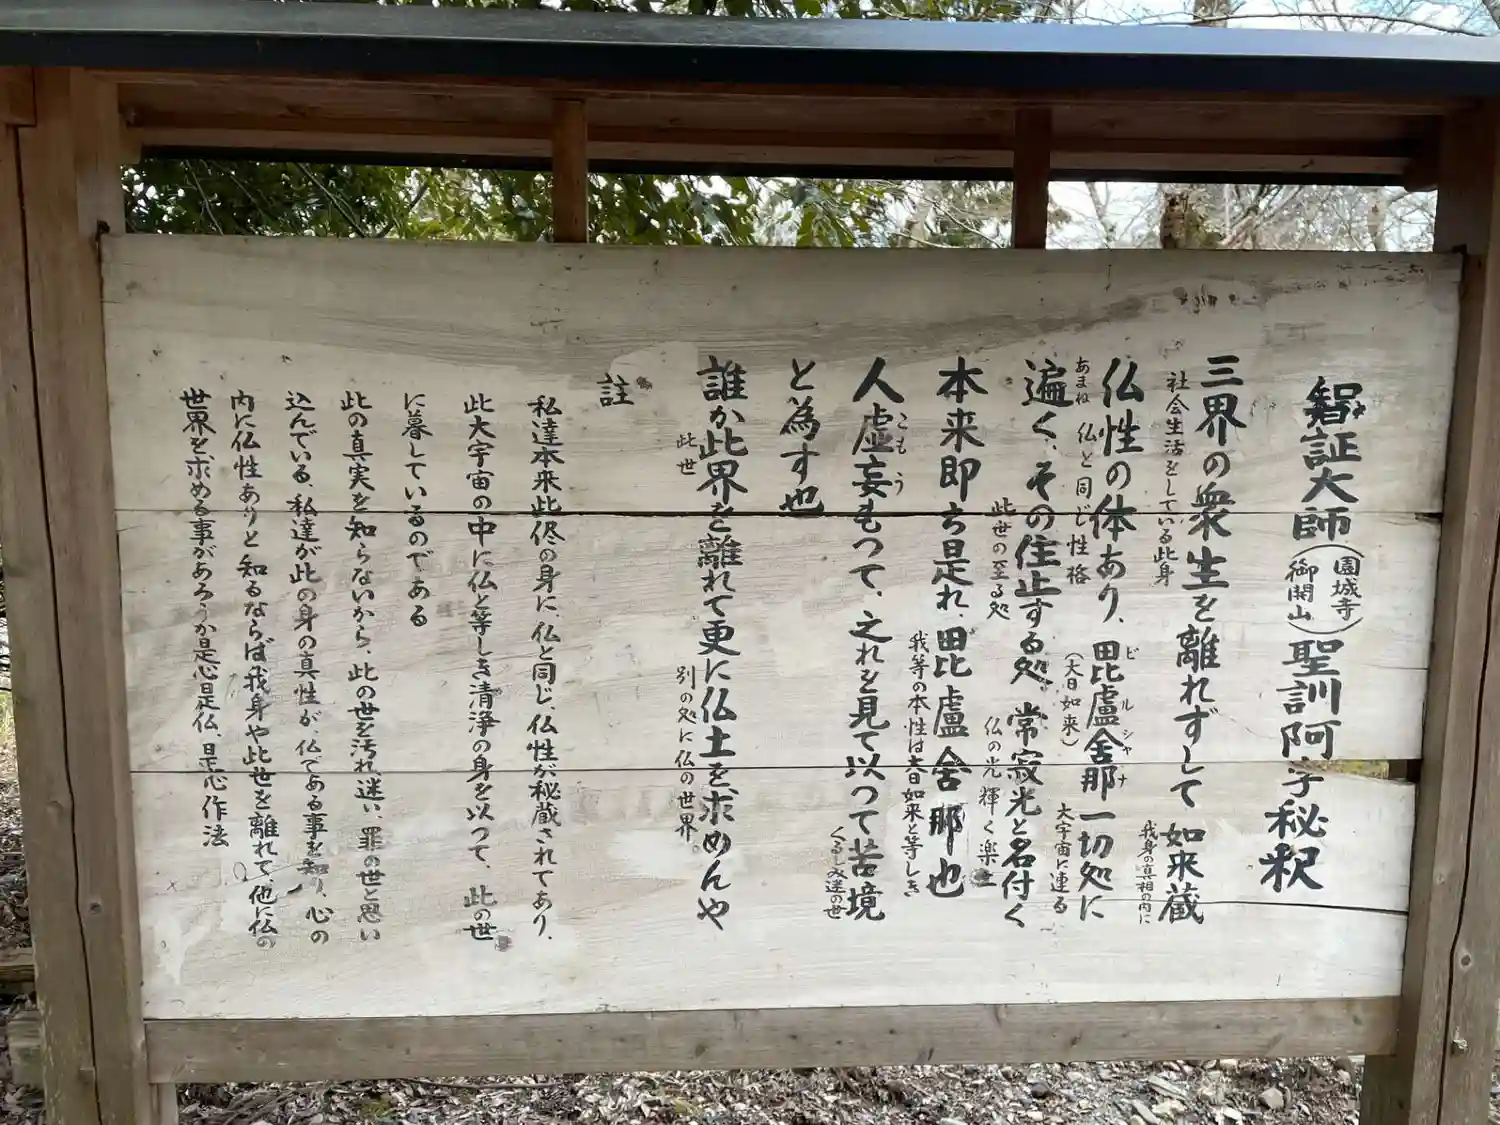 智証大師（園城寺御開山）聖訓阿字秘釈
三界の衆生を離れずして如来蔵
社会生活をしている此身
我身の真相の内に
仏性の体あり、毘盧舎那一切処に
仏と同じ性格
（大日如来）
ビルシャナ
大宇宙に連る
遍く、その住止する処、常寂光と名付く
あまね
此世の至る処
仏の光輝く楽土
本来即ち是れ、毘盧舎那也
我等の本性は大日如来と等しき
人虚妄もつて、之れを見て以つて苦境
こもう
くるしみ迷の世
と為す也
誰か此界を離れて更に仏土を求めんや
此世
別の処に仏の世界。
註
私達本来此侭の身に、仏と同じ、仏性が秘蔵されてあり、
此大宇宙の中に仏と等しき清浄の身を以つて、此の世
に暮しているのである
此の真実を知らないから、此の世を汚れ迷い、罪の世と思い
込んでいる、私達が此の身の真性が、仏である事を知り、心の
内に仏性ありと知るならば我身や此世を離れて、他に仏の
世界を、求める事があろうか是心是仏、是心作法